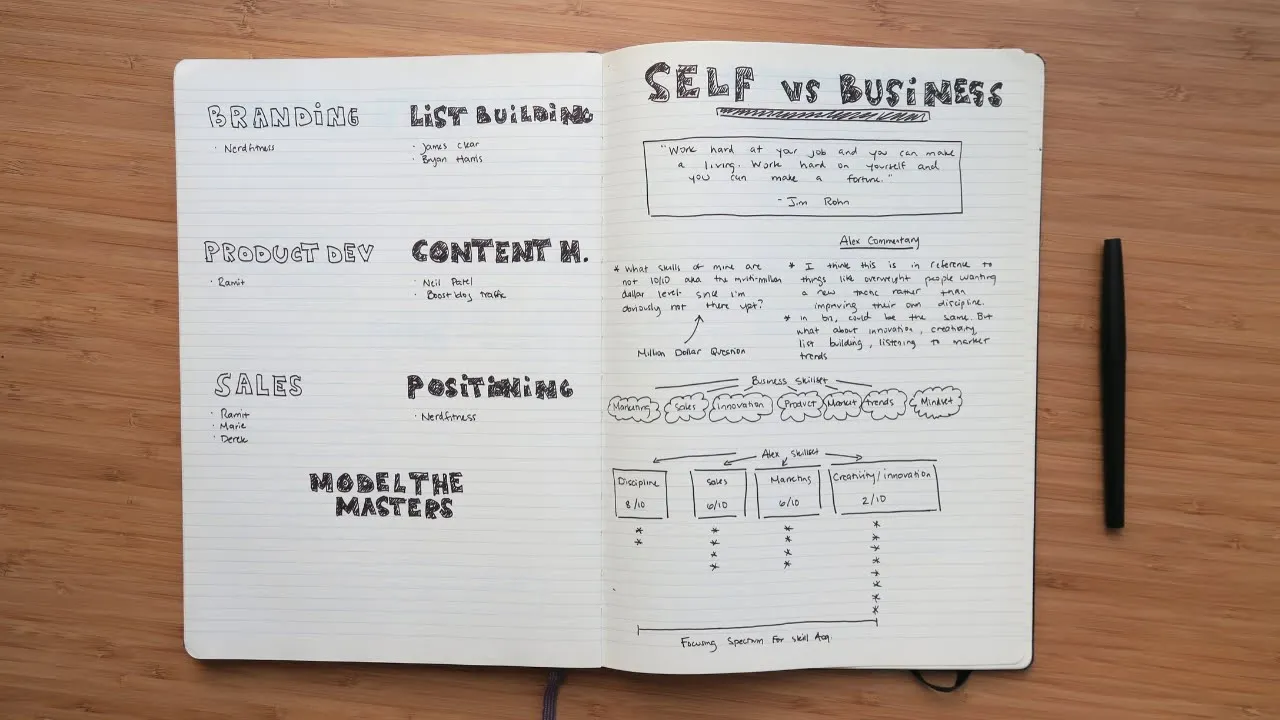 BRANDING
· Nerdfitness
LIST BUILDING
· James Clear
· Bryan Harris
PRODUCT DEV
· Ramit
CONTENT M.
· Neil Patel
· Boost blog traffic
SALES
· Ramit
· Marie
· Derek
POSITIONING
· Nerdfitness
MODEL THE
MASTERS
SELF vs BUSINESS
"Work hard at your job and you can make
a living. Work hard on yourself and
you can make a fortune."
- Jim Rohn
Alex Commentary
* What skills of mine are
not 10/10 aka the multi-million
dollar level since I'm
obviously not there yet?
Million Dollar Question
* I think this is in reference to
things like overweight people wanting
a new tactic rather than
improving their own discipline.
* in biz, could be the same. But
what about innovation, creativity,
list building, listening to market
trends
Business Skillset
Marketing Sales Innovation Product Market trends Mindset
Alex Skillset
Discipline Sales Marketing Creativity/innovation
8/10 6/10 6/10 2/10
Focusing Spectrum For Skill Acq.